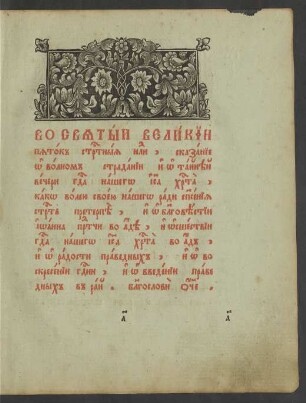 ВО СВѦТЫЙ ВЕЛИКИЙ
пѧтокъ стртныѧ нли , сказанїе
ѿ волномъ страданїи и ѿ тайнѣй
вечери гда нашегѡ іса хрта ,
какѡ волею своею нашегѡ ради спсенїѧ
стрть претерпѣ , и ѿ благовѣстїи
іѡанна пртчи во адѣ , и ѿ сшествїи
гда нашегѡ іса хрта во адъ ,
и ѿ радости праведныхъ , и ѿ во
скресенїи гдни , и ѿ введенїи праве
дныхъ въ рай . благослови оче ,